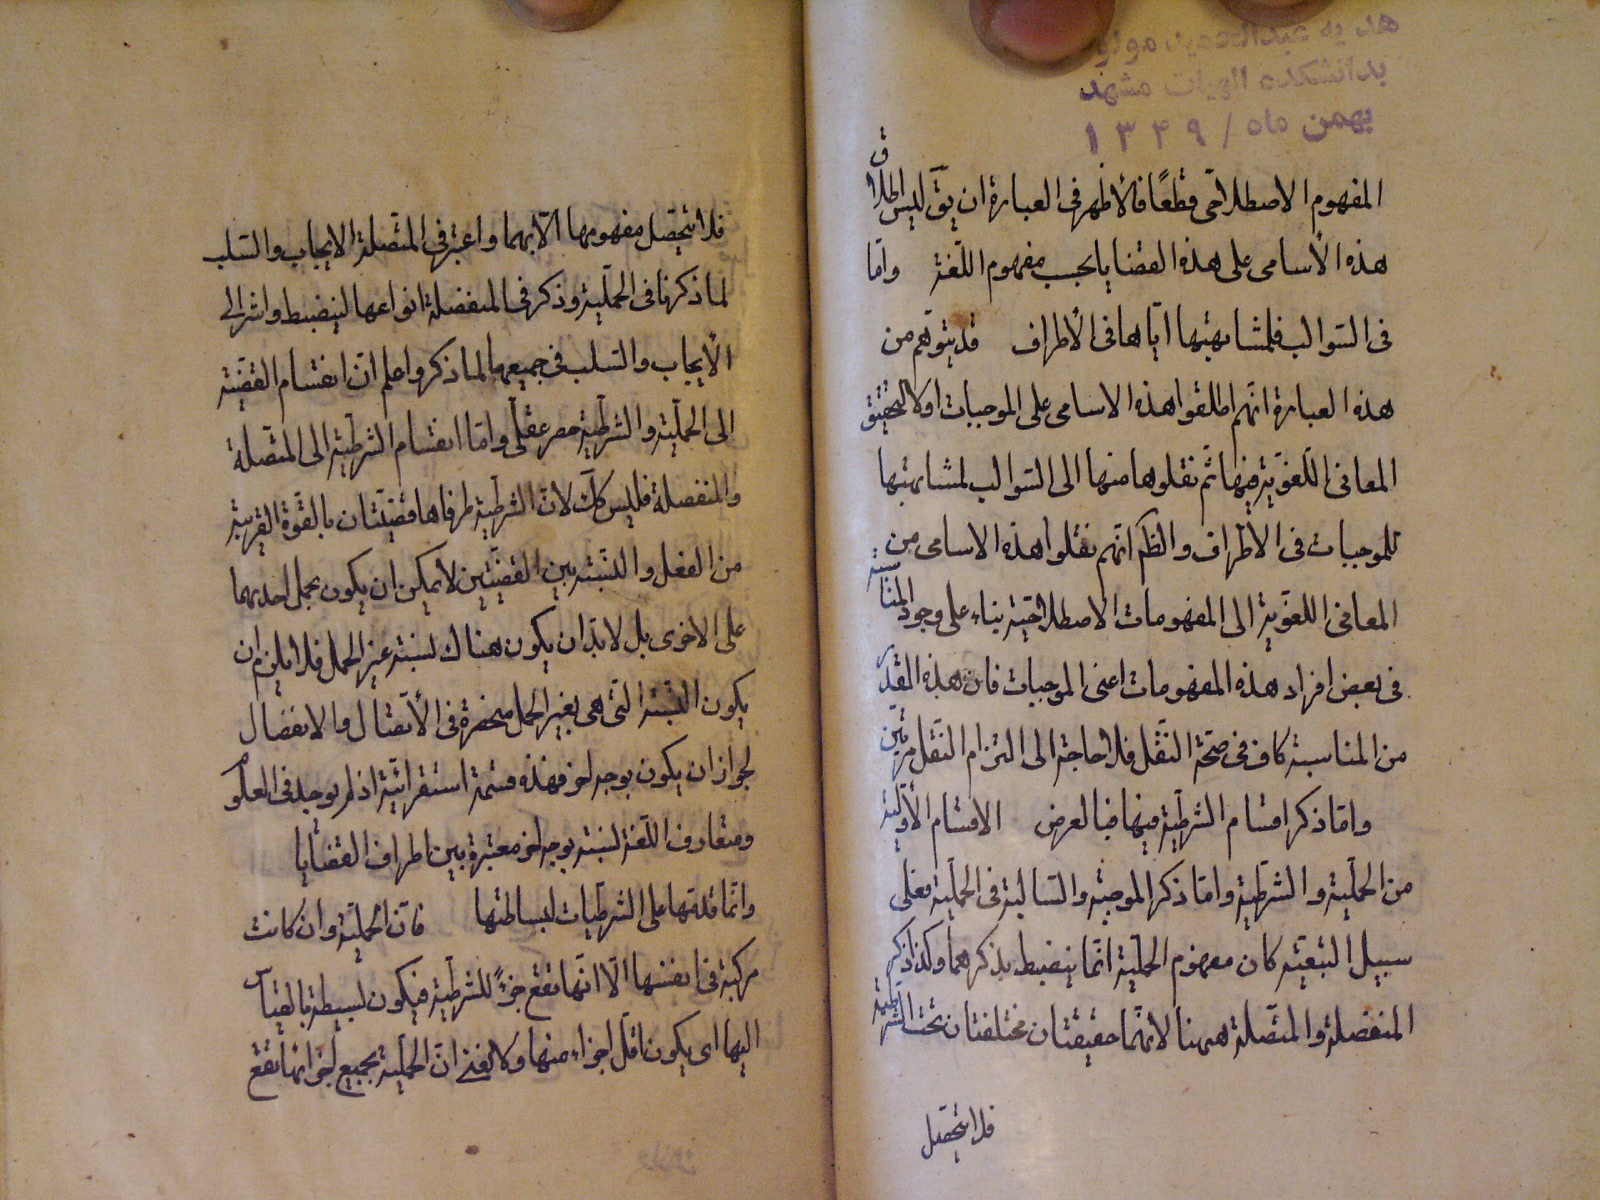 بهمن ماه / ١٣٤٩
المفهوم الاصطلاحى قطعًا فالأظهر فى العبارة ان يقَ ليس اطلاق
هذه الأسامى على هذه القضايا بحسب مفهوم اللّغة وامّا
فى السّوالب فلمشابهتها ايّاها فى الأطراف قد يتوهّم من
هذه العبارة انّهم اطلقوا هذه الاسامى على الموجبات اولا لتحقيق
المعانى اللّغويّة فيها ثم نقلوها منها الى السّوالب لمشابهتها
للموجبات فى الاطراف والظَم انّهم نقلوا هذه الاسامى من
المعانى اللّغويّة الى المفهومات الاصطلاحيّة بناء على وجود المناسبة
فى بعض افراد هذه المفهومات اعنى الموجبات فان هذا القدر
من المناسبة كاف فى صحّة النّقل فلا حاجة الى التزام النّقل مرّتين
وامّا ذكر اقسام الشّرطيّة فيها فبالعرض الاقسام الأوّليّة
من الحمليّة والشّرطيّة وامّا ذكر الموجبة والسّالبة فى الحمليّة فعلى
سبيل التّبعيّة كان مفهوم الحمليّة انّما ينضبط بذكرهما وكذا ذكر
المنفصلة والمتّصلة ههنا لانّهما حقيقتان مختلفتان تحت الشّرطيّة
فلا يتحصّل
فلا يتحصّل مفهومها الّا بهما واعتبر فى المتّصلة الايجاب والسّلب
لما ذكرنا فى الحمليّة وذكر فى المنفصلة انواعها لينضبط واشر الى
الايجاب والسّلب فى جميعها لما ذكر واعلم انّ انقسام القضيّة
الى الحمليّة والشّرطيّة حصر عقلىّ وامّا انقسام الشّرطيّة الى المتّصلة
والمنفصلة فليس كلَك لانّ الشّرطيّة طرفاها قضيّتان بالقوّة القريبة
من الفعل والنّسبة بين القضيّتين لا يمكن ان يكون بحمل احديهما
على الاخرى بل لا بدّ ان يكون هناك نسبة غير الحمل فلا يلزم ان
يكون النّسبة الّتى هى بغير الحمل منحصرة فى الأتّصال والانفصال
لجواز ان يكون بوجه اخر فهذه قسمة استقرائيّة اذ لم يوجد فى العلوم
ومتعارف اللّغة نسبة بوجه اخر معتبرة بين اطراف القضايا
وانّما قدّمها على الشّرطيات لبساطتها فانّ الحمليّة وان كانت
مركبة فى نفسها الّا انّها تقع جزءً للشّرطيّة فيكون بسيطة بالقياس
اليها اى يكون اقل اجزاء منها ولا نعنى انّ الحمليّة بجميع اجزائها تقع